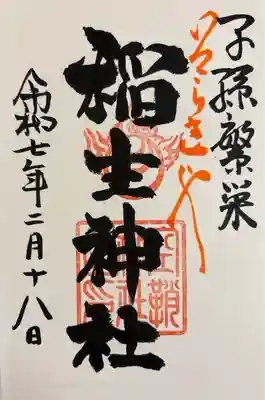 子孫繁栄
稲生神社
令和七年二月十八日